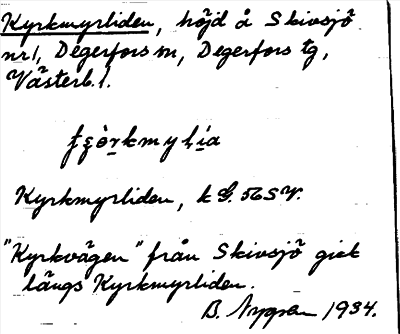 Kyrkmyrliden, höjd å Skivsjö
nr 1, Degerfors sn, Degerfors tg,
Västerb. l.
Kyrkmyrliden, k G. 56 SV.
"Kyrkvägen" från Skivsjö gick
längs Kyrkmyrliden.
B. Nygren 1934.